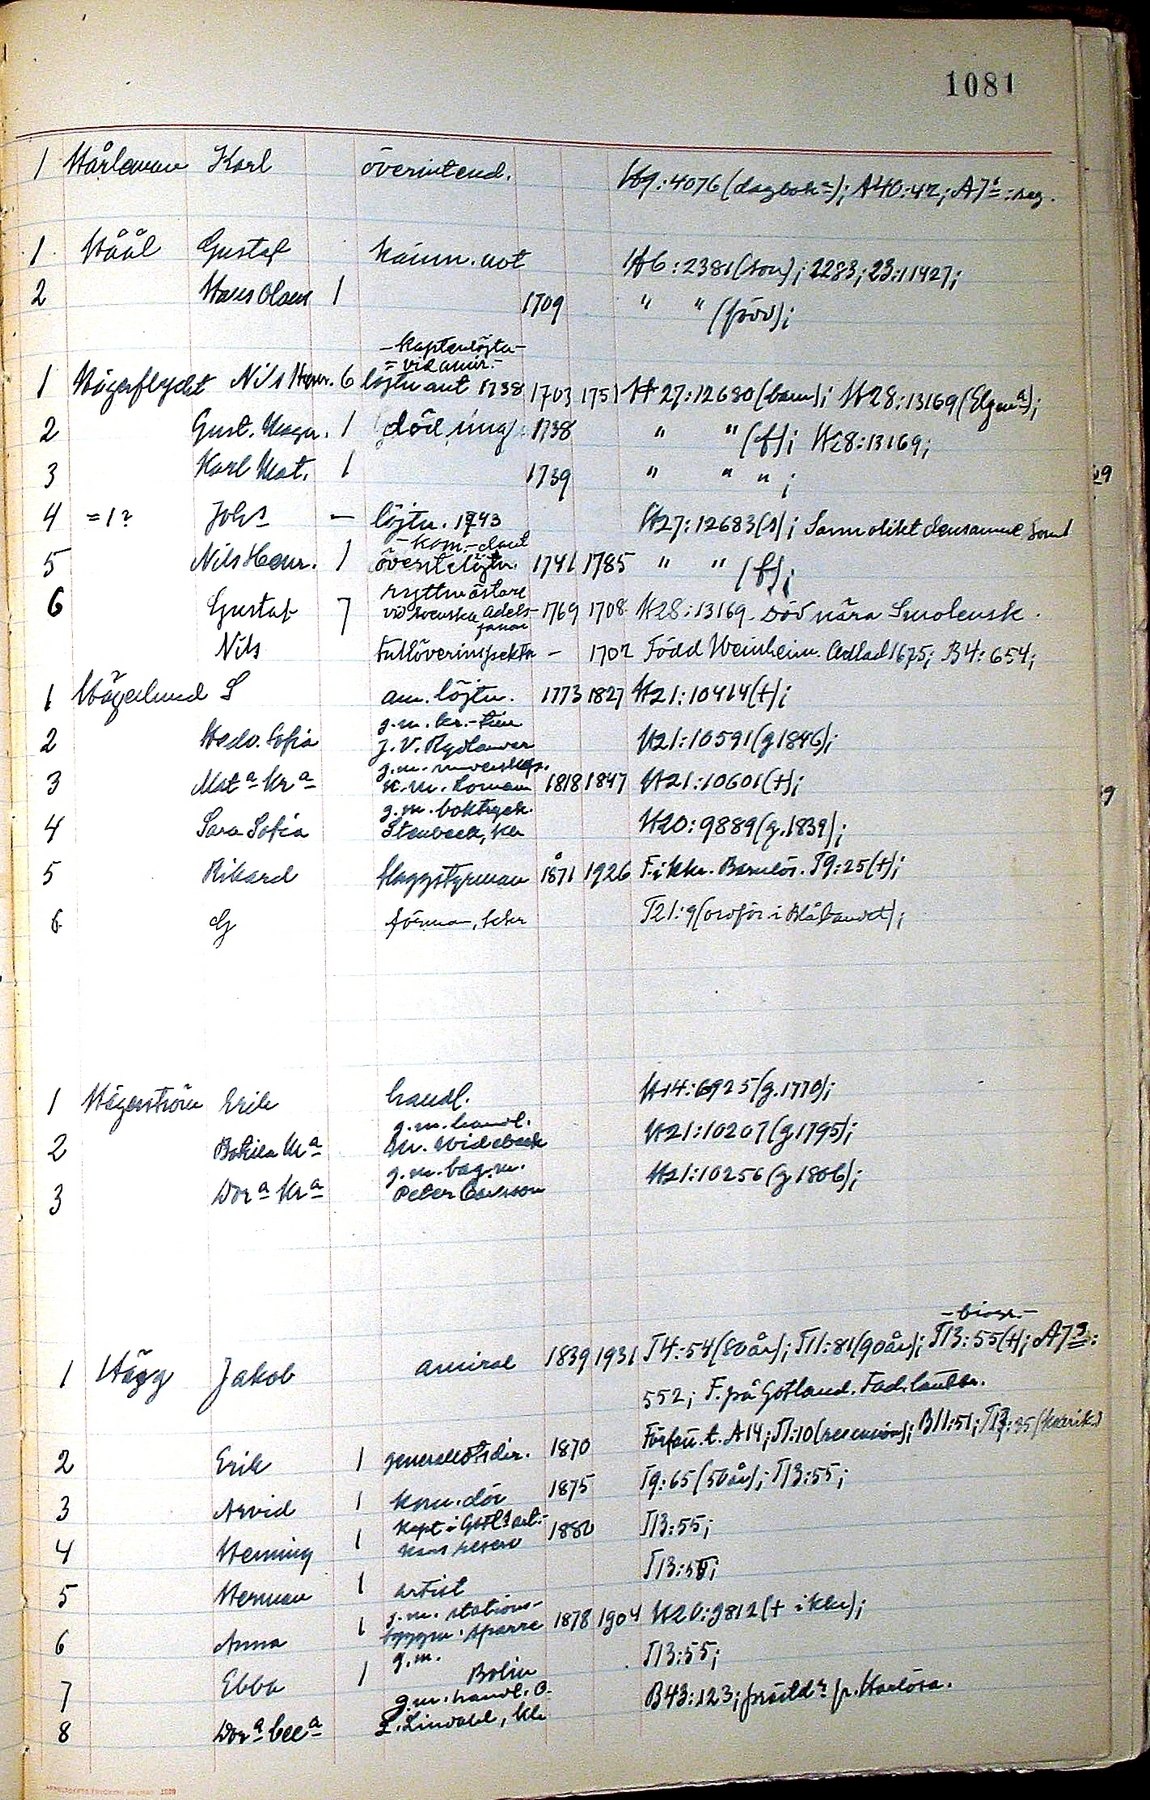 1081
1 Hårleman Karl överintend. H9:4076 (dagbok); A40:42; A7:1: reg.
1 Håål Gustaf kämn. not H6:2381 (son); 2283; 23:11427;
2 Hans Olsson 1 1709 " " (född);
- kaptenlöjtn -
= vid amir. -
1 Hägerflycht Nils Henr. 6 löjtnant 1738 1703 1751 H27:12680 (barn); H28:13169
2 Gust. Magn. 1 (död ung) 1738 " " (f); H28:13169;
3 Karl Mat. 1 1739 " " " ;
4 = 1? Johs — löjtn. 1743 H27:12683 (s); Sannolikt densamme som
- kom.-dant
5 Nils Henr. 1 överstelöjtn. 1741 1785 " " (f);
ryttmästare
6 Gustaf 7 vid svenska adels- 1769 1708 H28:13169. död nära Smolensk.
fanan
Nils tullöverinspektör — 1702 Född Weinheim. Adlad 1675; B4:654;
1 Hägerlund S am. löjtn. 1773 1827 H21:10414 (+);
g.m. kr.-
2 Hedv. Sofia J. V. Rydlander H21:10591 (g 1846);
g.m.
3 Mata Kra 1818 1847 H21:10601 (+);
g.m. boktryck.
4 Sara Sofia Stenbeck, Kkr H20:9889 (g. 1839);
5 Rikard flaggstyrman 1871 1926 F. i Kkr. Barnlös. T9:25 (+);
6 G förman, Kkr T21:9 (ordför i Blåbandet);
1 Hägerström Erik handl. H14:6925 (g. 1770);
g.m. handl.
2 Botilla Kra M. Wideback H21:10207 (g 1795);
g.m. bag.m.
3 Dora Kra Peter Carlsson H21:10256 (g 1806);
- biogr. -
1 Hägg Jakob amiral 1839 1931 T4:54 (80 år); T11:81 (90 år); T13:55 (+); A7:
552; F. på Gotland. Fad. lantbr.
Förfa. t. A14; T1:10 (recension); B11:51; T13:35
2 Erik 1 generallotsdir. 1870
3 Arvid 1 kom.dör 1875 T9:65 (50 år); T13:55;
kapt i Gotl:s art.-
4 Henning 1 kårs reserv 1880 T13:55;
5 Herman 1 artist T13:55;
g.m. stations-
6 Anna 1 byggm. Sparre 1878 1904 H20:9812 (+ i Kkr);
g.m.
7 Ebba 1 Bolin T13:55;
g.m. handl. C.
8 Dora Cec:a L. Lindahl, Kkr B43:123;